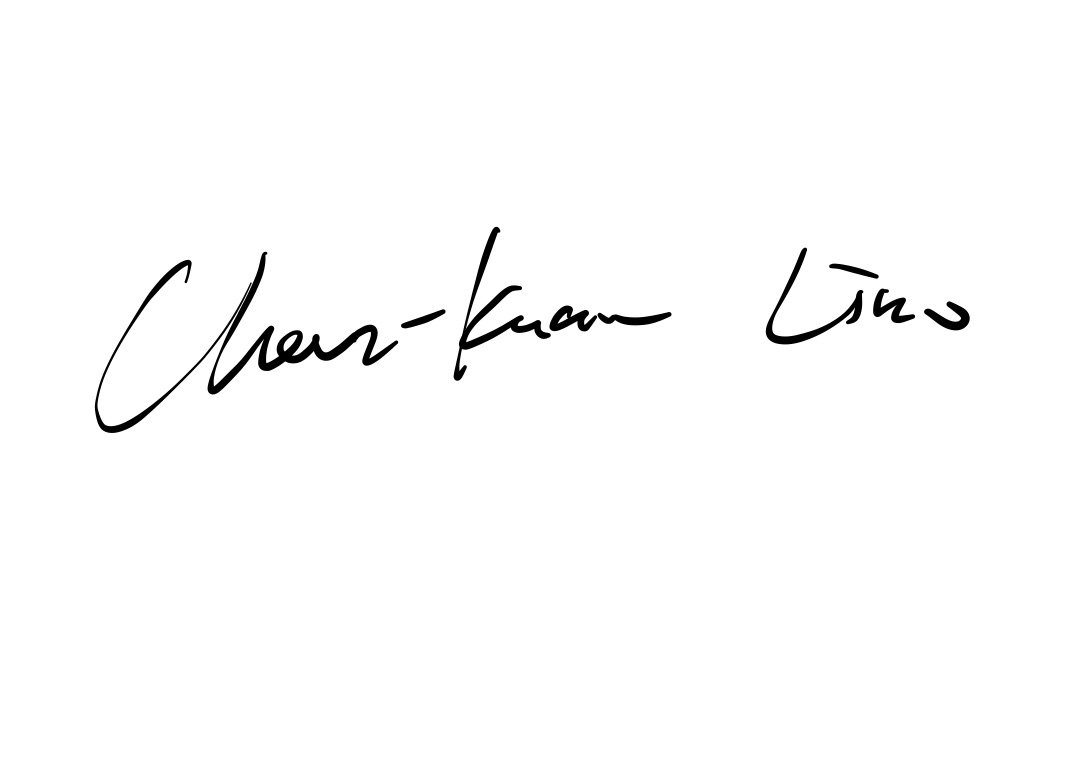 Chen-Kuan Lin